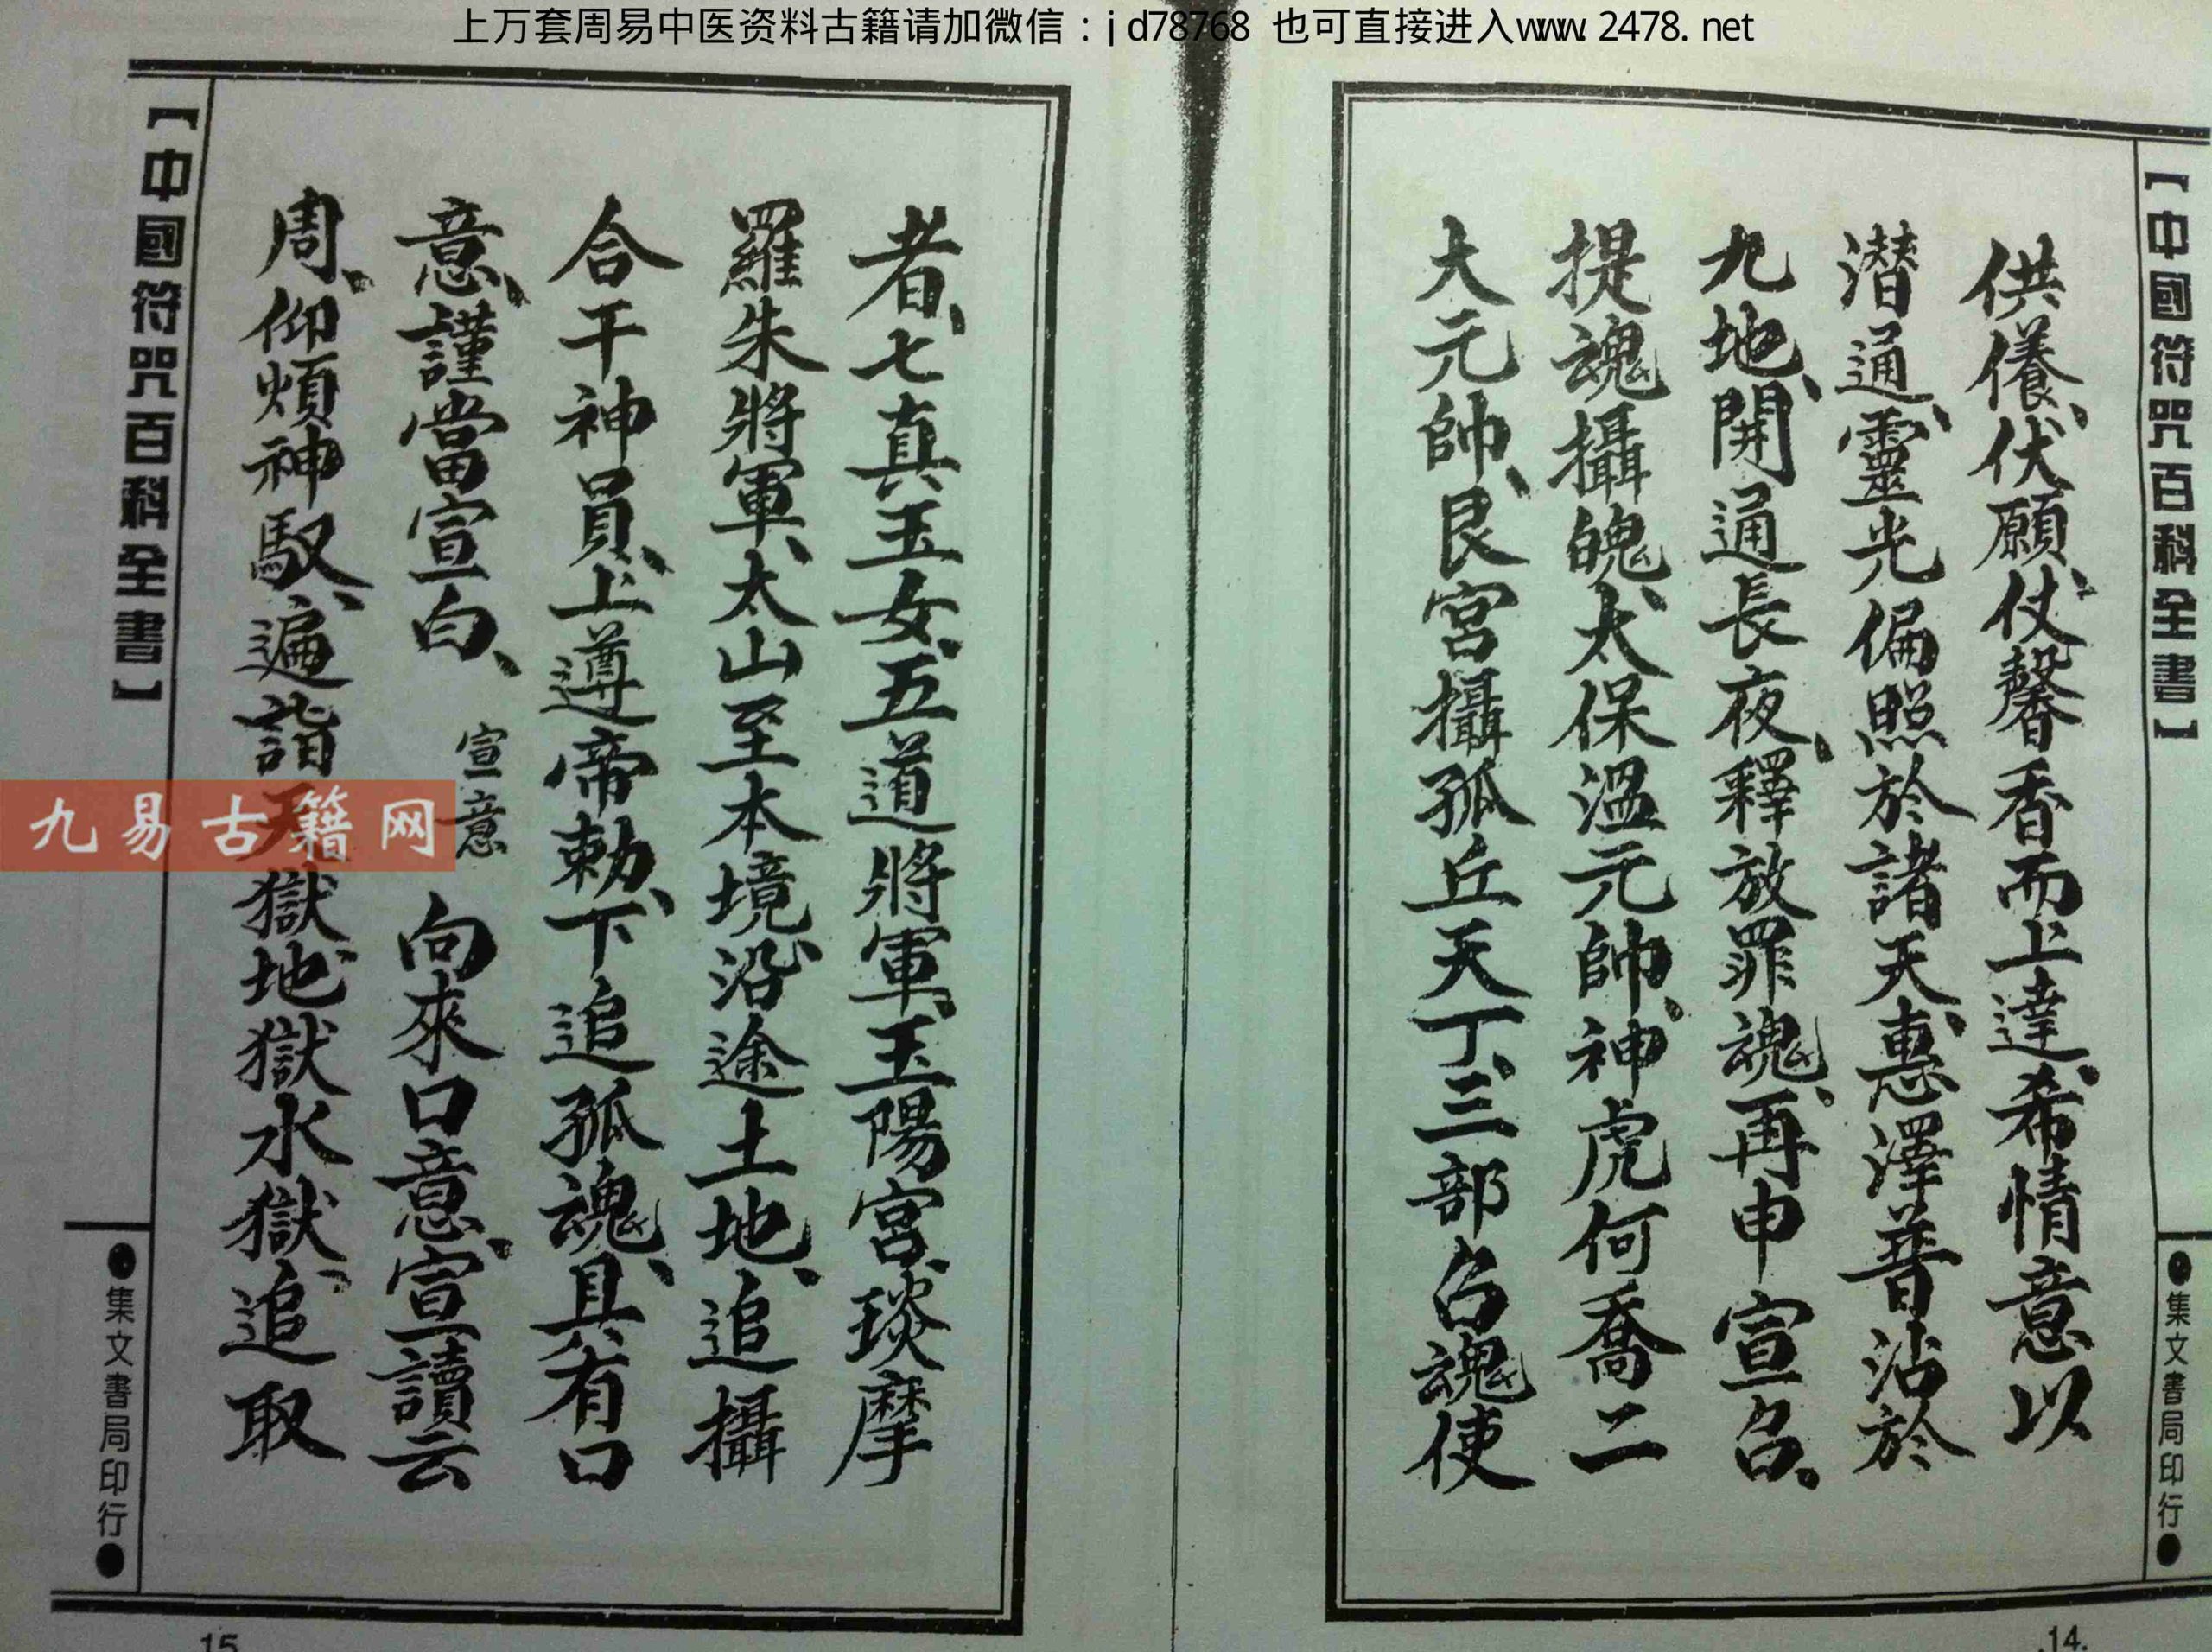 上万套周易中医资料古籍请加微信：jd78768 也可直接进入www.2478.net
【中國符咒百科全書】
●集文書局印行●
供儀、伏願、仗馨香而上達、希情意以
潛通、靈光偏照於諸天、惠澤普沾於
九地、開通長夜、釋放罪魂、再申宣召、
提魂攝魄、太保溫元帥、神虎何喬二
大元帥、艮宮攝孤丘天丁、三部召魂使
14
者、七真玉女、五道將軍、玉陽宮、琰摩
羅朱將軍、太山至本境、沿途土地、追攝
合干神員、上遵帝勅、下追孤魂、具有口
意、謹當宣白、 宣意 向來口意、宣讀云
周、仰煩神馭、遍詣天獄地獄水獄、追取
【中國符咒百科全書】
●集文書局印行●
15
九易古籍网